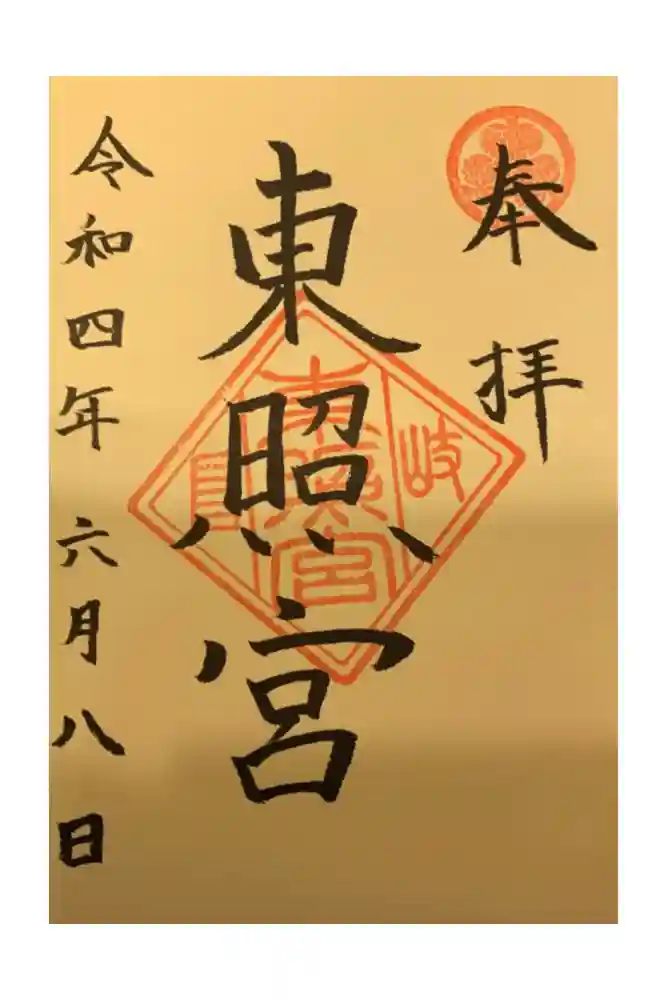 奉拝
東照宮
岐
東照宮
令和四年六月八日